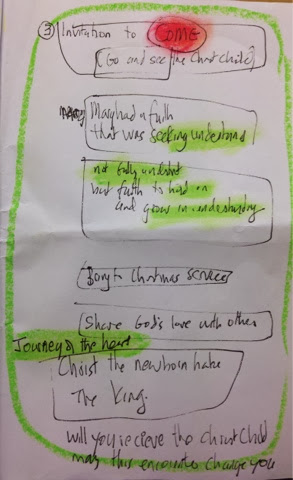 ③ Invitation to COME
(Go and see the Christ Child)
Mary had a faith
that was seeking understand
not fully understand
but faith to hold on
and grow in understanding
Bring to Christmas Services
Share God's love with other
Journey of the heart
Christ the newborn babe
The King.
will you recieve the christ child
may this encounter change you